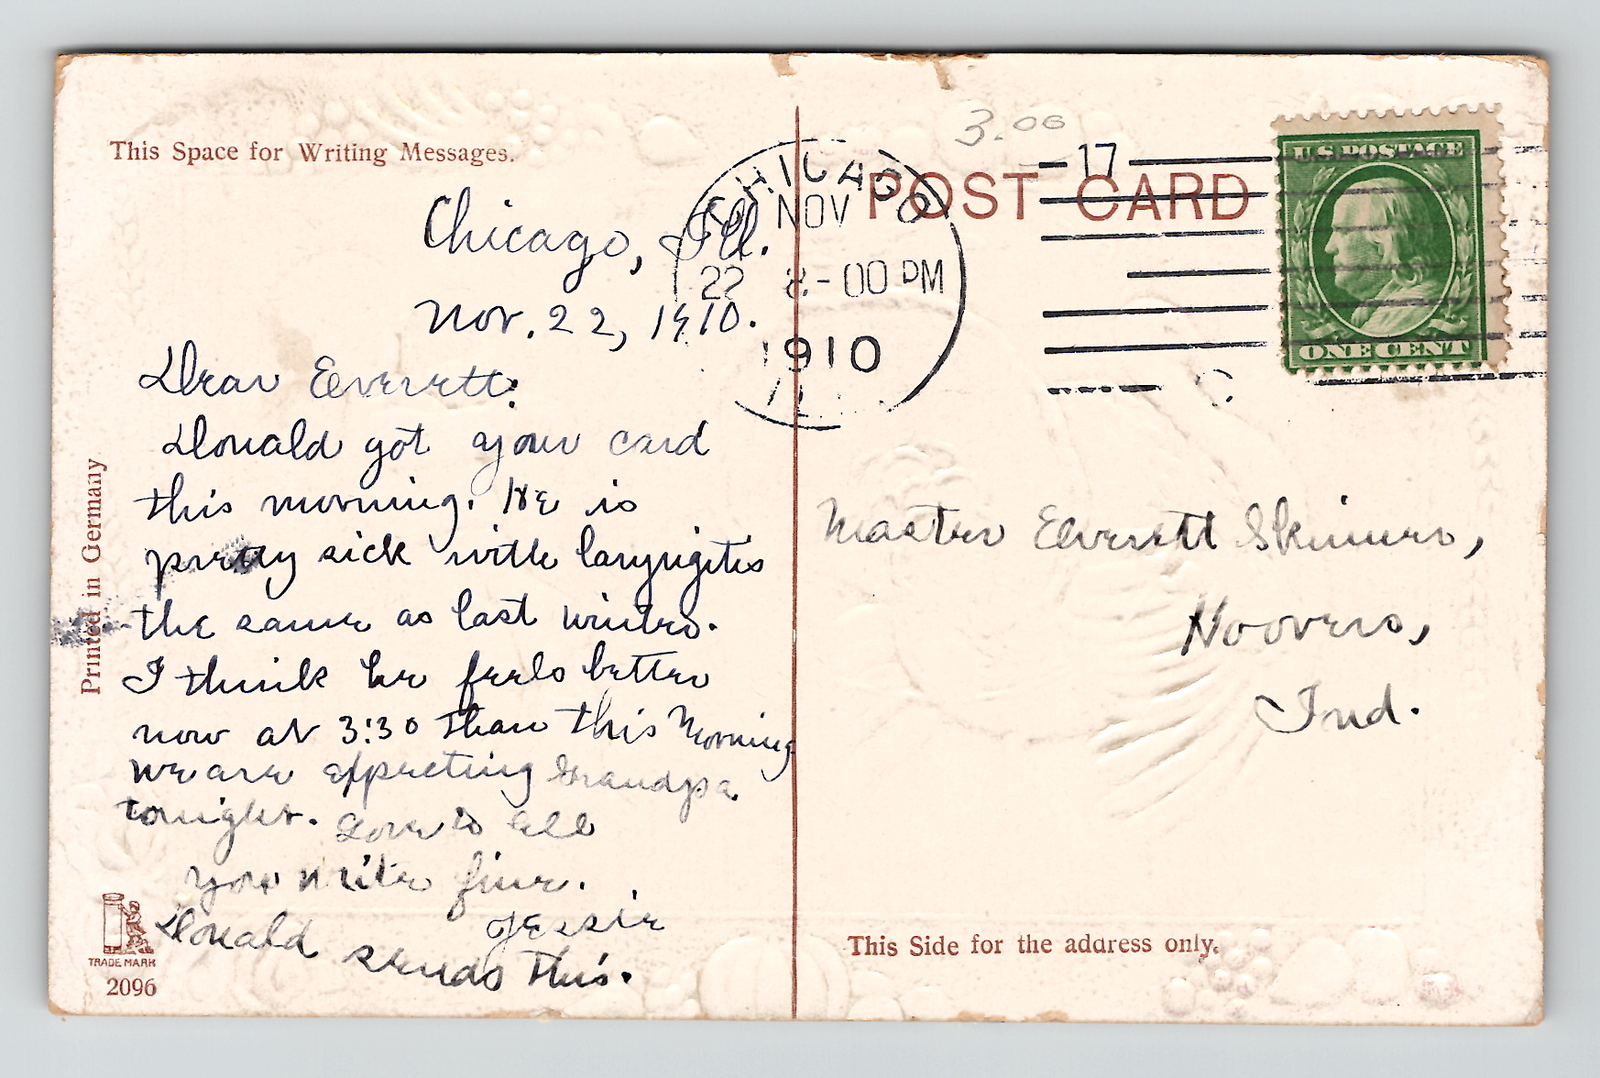 This Space for Writing Messages.
Chicago, Ill.
Nov. 22, 1910.
Dear Everett:
Donald got your card
this morning. He is
pretty sick with laryngitis
the same as last winter.
I think he feels better
now at 3:30 than this Morning
we are expecting Grandpa
tonight. Love to all
you write fine.
Jessie
Donald sends this.
Printed in Germany
TRADE MARK
2096
3.00
POST CARD
CHICAGO
NOV
22 8-00 PM
1910
17
U.S. POSTAGE
ONE CENT
Master Everett Skinner,
Hoovers,
Ind.
This Side for the address only.